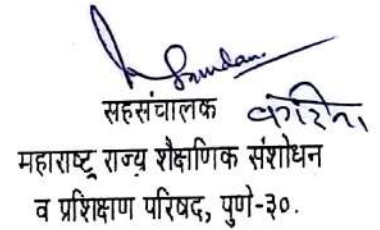 सहसंचालक करिता
महाराष्ट्र राज्य शैक्षणिक संशोधन
व प्रशिक्षण परिषद, पुणे-३०.